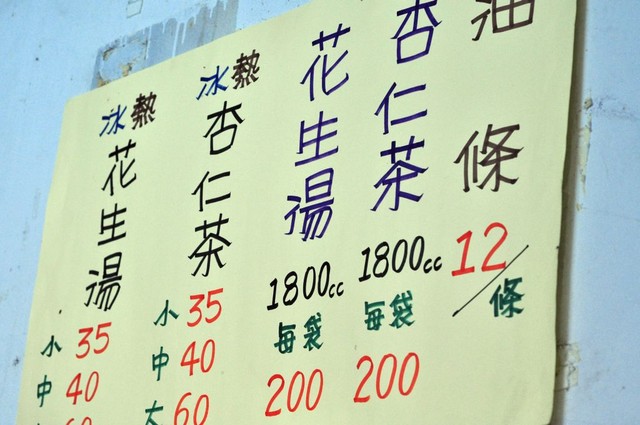 油條
12/條
杏仁茶
1800cc
每袋
200
花生湯
1800cc
每袋
200
冰熱
杏仁茶
小 35
中 40
大 60
冰熱
花生湯
小 35
中 40
60